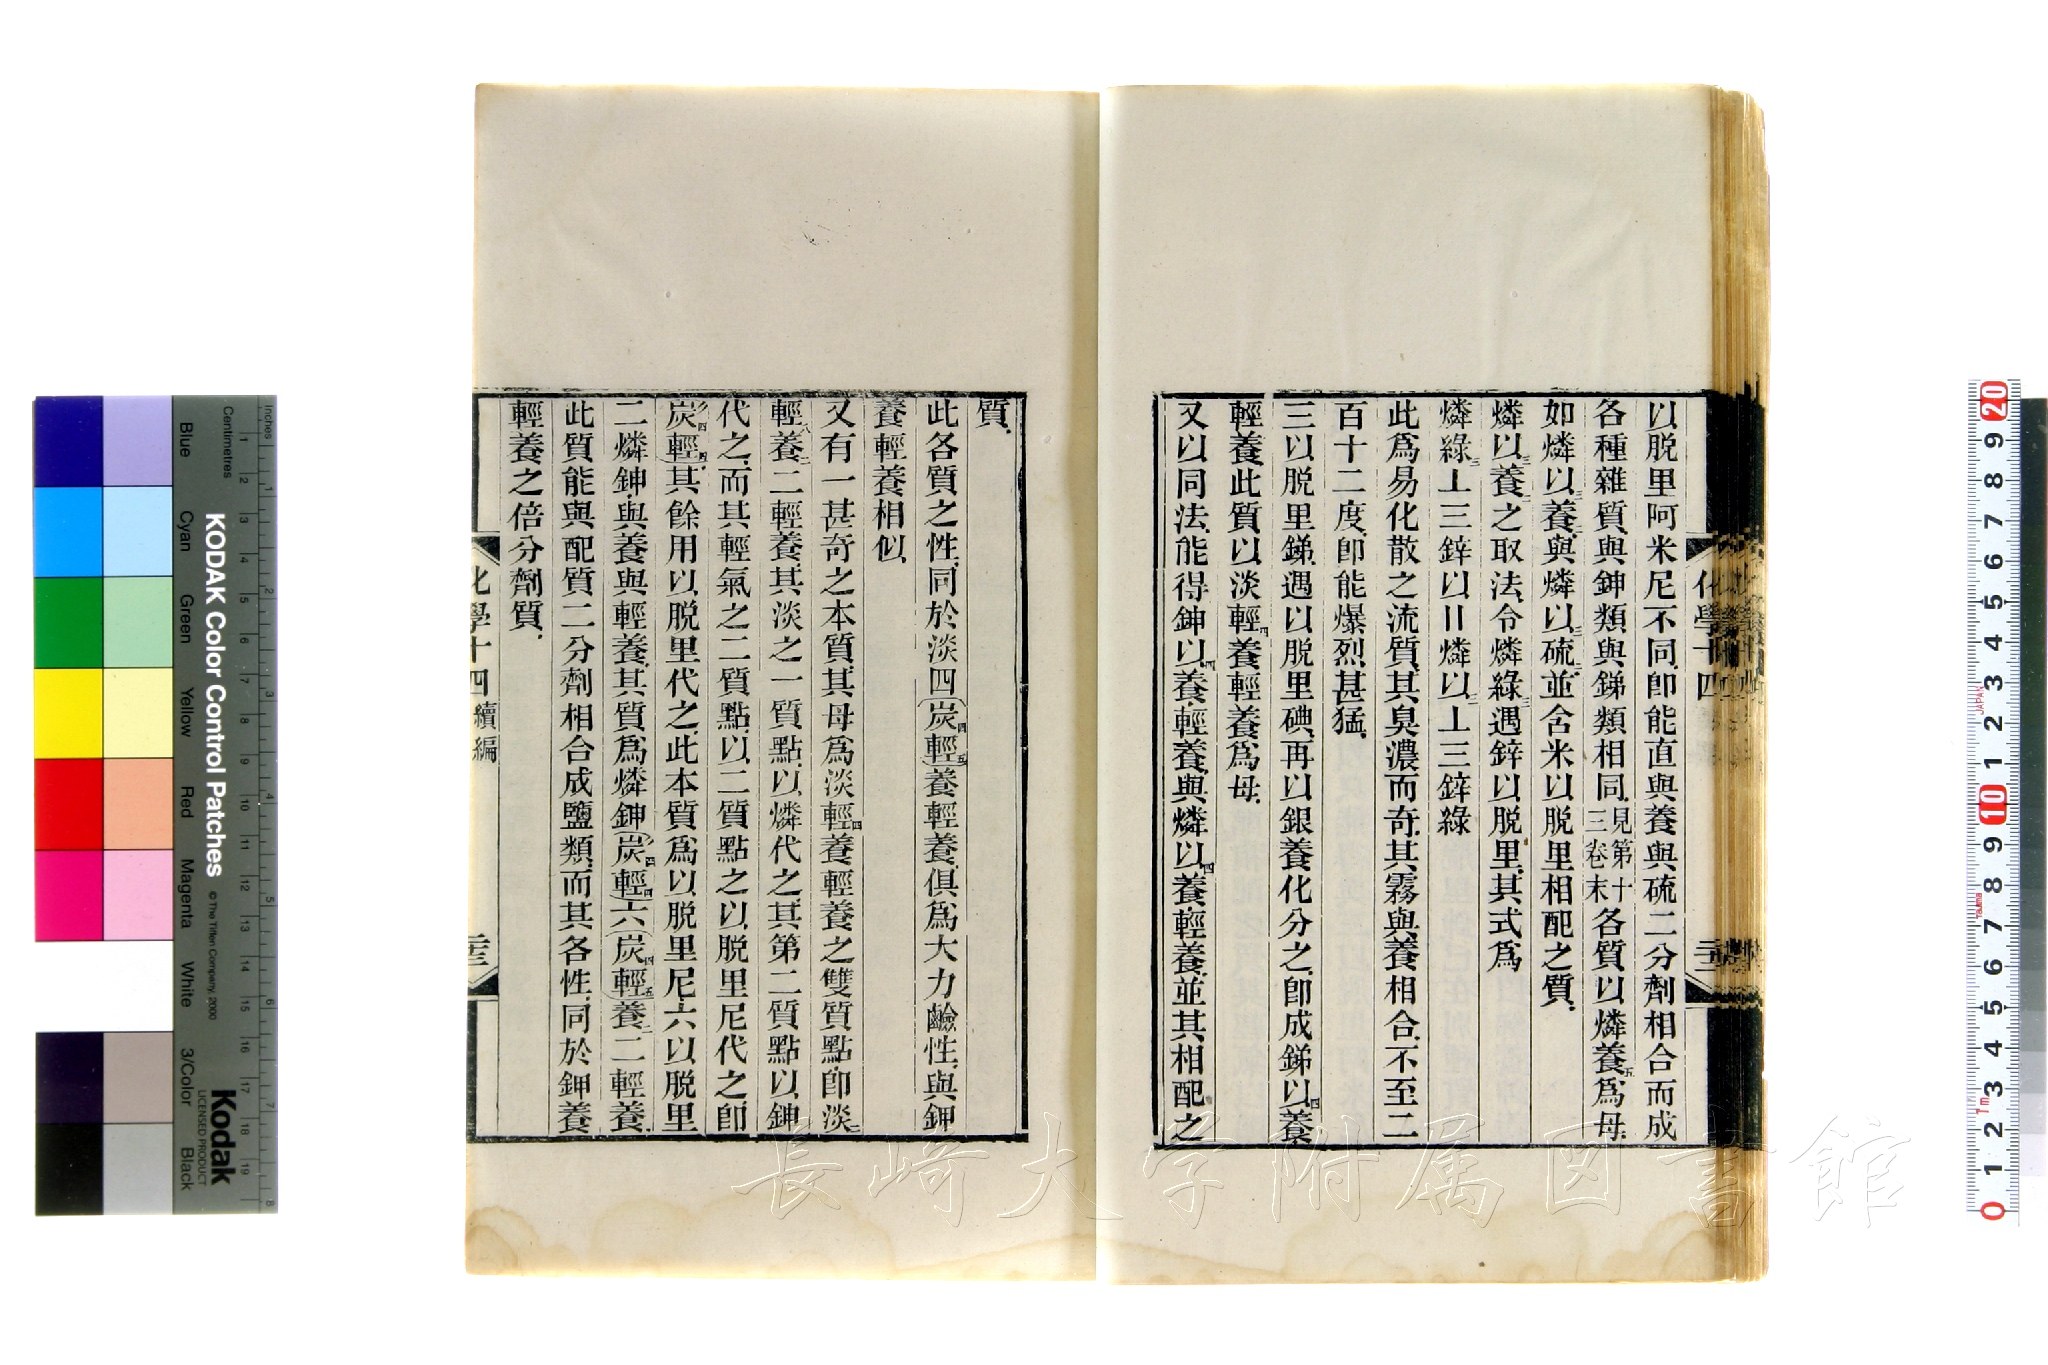 以脫里阿米尼不同、卽能直與養與硫二分劑相合而成
各種雜質與鉀類與銻類相同、見第十三卷末各質以燐養五爲母、
如燐以三養、與燐以三硫、並含米以脫里相配之質、
燐以三養二之取法、令燐綠三遇鋅以脫里、其式爲
燐綠三⊥三鋅以〢燐以三⊥三鋅綠
此爲易化散之流質、其臭濃而奇、其霧與養相合、不至二
百十二度、卽能爆烈甚猛、
三以脫里銻、遇以脫里碘、再以銀養化分之、卽成銻以四養
輕養、此質以淡輕四養輕養爲母、
又以同法、能得鉮以四養、輕養、與燐以四養輕養、並其相配之
化學十四
二十二
質、
此各質之性、同於淡四(炭四輕五)養輕養、俱爲大力鹼性、與鉀
養輕養相似、
又有一甚奇之本質、其母爲淡輕四養輕養之雙質點、卽淡二
輕八養二二輕養、其淡之一質點、以燐代之、其第二質點以鉮
代之、而其輕氣之二質點、以二質點之以脫里尼代之、卽
炭四輕四、其餘用以脫里代之、此本質爲以脫里尼六以脫里
二燐鉮與養與輕養、其質爲燐鉮(炭四輕四)六(炭四輕五)養二二輕養、
此質能與配質二分劑相合成鹽類、而其各性、同於鉀養
輕養之倍分劑質、
化學十四 續編
二十三
長崎大学附属図書館
KODAK Color Control Patches
© The Tiffen Company, 2000
Kodak
LICENSED PRODUCT
Inches
Centimetres
Blue
Cyan
Green
Yellow
Red
Magenta
White
3/Color
Black